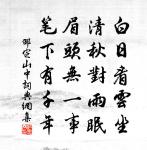 白日看雲坐
清秋對雨眠
眉頭無一事
筆下有千年
邵定山中詞典網集